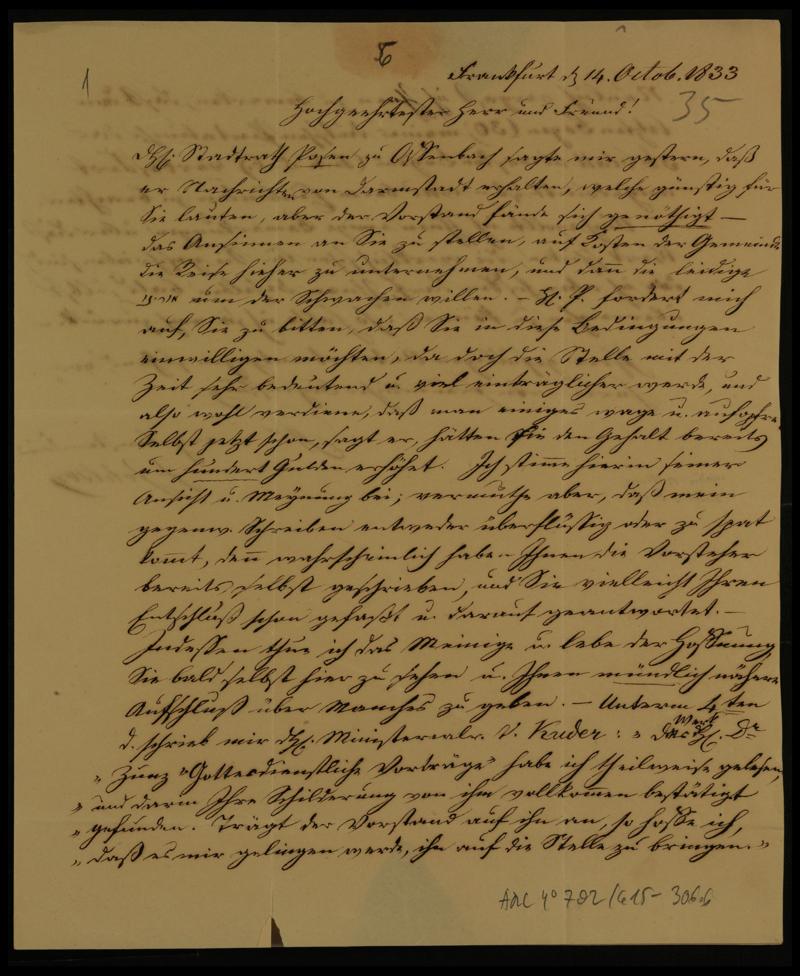 5
1
Frankfurt d 14. Octob. 1833
35
Hochgeehrtester Herr und Freund!
H. Stadtrath Posen zu Offenbach sagte mir gestern, daß
er Nachrichten von Darmstadt erhalten, welche günstig für
Sie lauten, aber der Vorstand fände sich genöthigt –
das Ansinnen an Sie zu stellen, auf Kosten der Gemeinde
die Reise hieher zu unternehmen, und dann die leidige
um der Schwachen willen. – H. P. fordert mich
auf, Sie zu bitten, daß Sie in diese Bedingungen
einwilligen möchten, da doch die Stelle mit der
Zeit sehr bedeutend u. viel einträglicher werde, und
also wohl verdiene, daß man einiges wage u. aufopfre.
Selbst jetzt schon, sagt er, hätten sie den Gehalt bereits
um hundert Gulden erhöhet. Ich stimme hierin seiner
Ansicht u. Meynung bei; vermuthe aber, daß mein
gegenw. Schreiben entweder überflüssig oder zu spat
kommt, denn wahrscheinlich haben Ihnen die Vorsteher
bereits selbst geschrieben, und Sie vielleicht Ihren
Entschluß schon gefaßt u. darauf geantwortet. –
Indessen thue ich das Meinige u. lebe der Hoffnung
Sie bald selbst hier zu sehen u. Ihnen mündlich nähern
Aufschluß über Manches zu geben. – Unterm 4ten
d. schrieb mir H. Ministerialr. v. Kuder: " Das Werk H. Dr
" Zunz "Gottesdienstliche Vorträge" habe ich theilweise gelesen,
" und darin Ihre Schilderung von ihm vollkommen bestätigt
" gefunden. Trägt der Vorstand auf ihn an, so hoffe ich,
" daß es mir gelingen werde, ihn auf die Stelle zu bringen. "
ARC 4° 792/G15-306.6